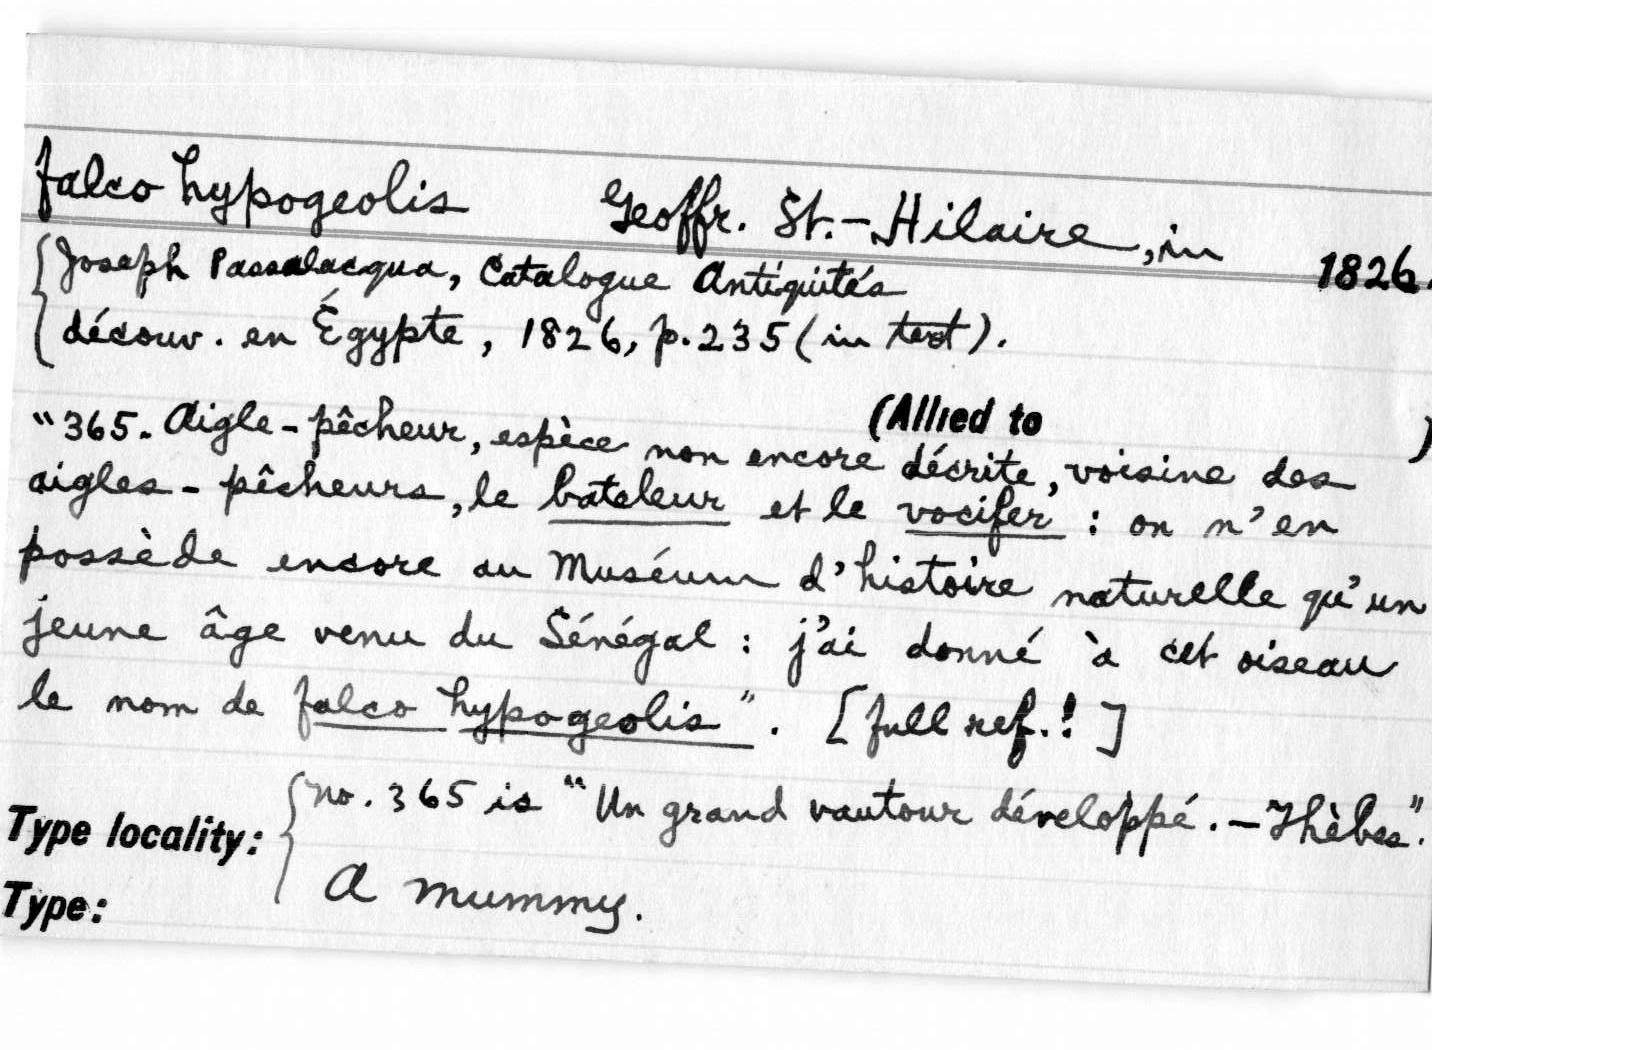 falco hypogeolis Geoffr. St.-Hilaire, in 1826.
Joseph Passalacqua, Catalogue Antiquités
découv. en Égypte, 1826, p. 235 (in text).
(Allied to )
"365. Aigle-pêcheur, espèce non encore décrite, voisine des
aigles-pêcheurs, le bateleur et le vocifer : on n'en
possède encore au Muséum d'histoire naturelle qu'un
jeune âge venu du Sénégal : j'ai donné à cet oiseau
le nom de falco hypogeolis". [full ref.!]
Type locality: No. 365 is "Un grand vautour développé. - Thèbes".
Type: A mummy.